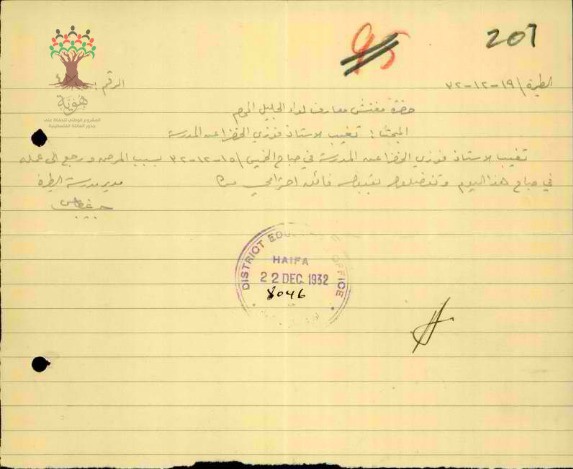 207
95
هوية
الرقم
الطيرة / ١٩-١٢-٣٢
حضرة مفتش معارف لواء الجليل المحترم
المبحث: تغيب الاستاذ فوزي الخضرا عن المدرسة
تغيب الاستاذ فوزي الخضرا عن المدرسة في صباح الخميس / ١٥-١٢-٣٢ بسبب المرض ورجع الى عمله
في صباح هذا اليوم وتفضلوا بقبول فائق احترامي
مدير مدرسة الطيرة
DISTRICT EDU OFFICE
HAIFA
22 DEC 1932
8046